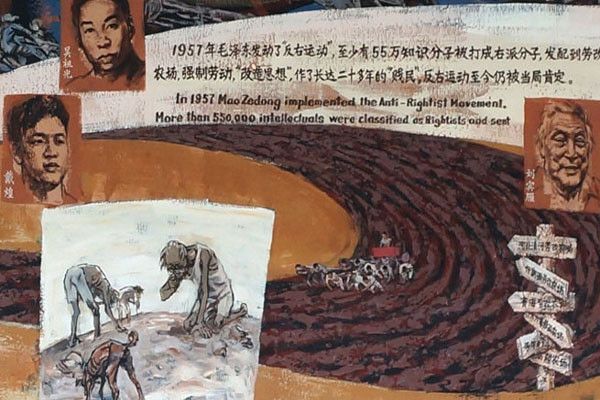 吴祖光
1957年毛泽东发动了“反右运动”,至少有55万知识分子被打成右派分子,发配到劳改
农场,强制劳动,“改造思想”,作了长达二十多年的“贱民”,反右运动至今仍被当局肯定。
In 1957 Mao Zadong implemented the Anti-Rightist Movement.
More than 550,000 intellectuals were classified as Rightists and sent
戴煌
刘宾雁